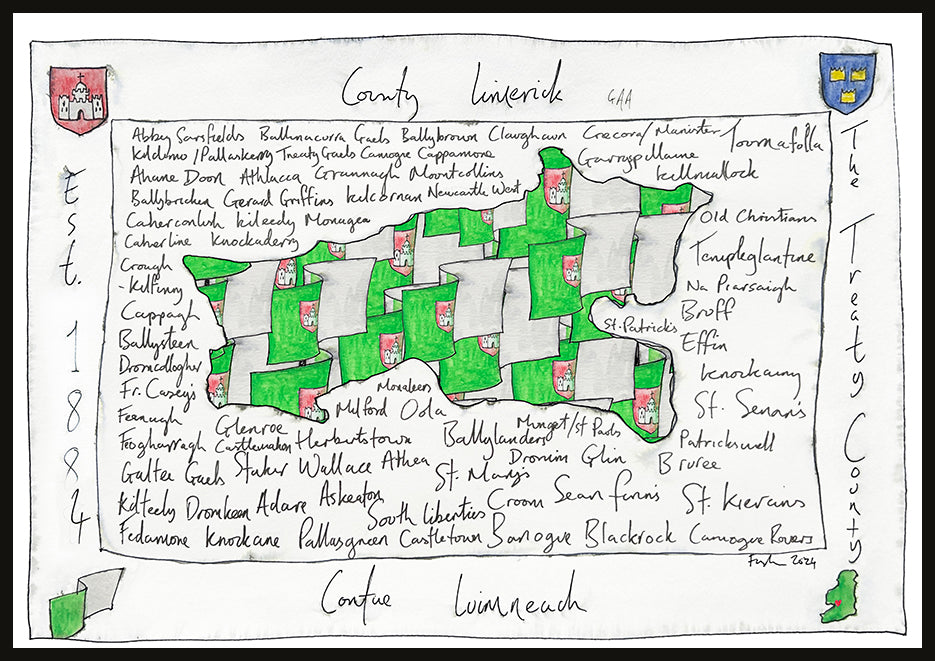 County Limerick GAA
Est. 1884
The Treaty County
Abbey Sarsfields Ballinacurra Gaels Ballybrown Claughaun Crecora/Manister Tournafulla
Kildimo/Pallaskenry Treaty Gaels Camogie Cappamore Garryspillane
Ahane Doon Athlacca Granagh Mountcollins Killmallock
Ballybricken Gerard Griffins Kilcornan Newcastle West
Caherconlish Kileedy Monagea Old Christians
Caherline Knockaderry Templeglantine
Crough
-Kilfinny
Na Piarsaigh
Cappagh Bruff
St. Patricks
Ballysteen Effin
Dromcollogher Knockainy
Fr. Casey's Monaleen St. Senan's
Feenagh Glenroe Milford Oola Mungret/St Pauls
Feoghanagh Castlemahon Herbertstown Ballylanders Patrickswell
Galtee Gaels Staker Wallace Athea Dromin Glin Bruree
St. Mary's
Kilteely Dromkeen Adare Askeaton Croom Sean Finn's St. Kierans
South Liberties
Fedamore Knockane Pallasgreen Castletown Banogue Blackrock Camogue Rovers
2024
Contae Luimneach